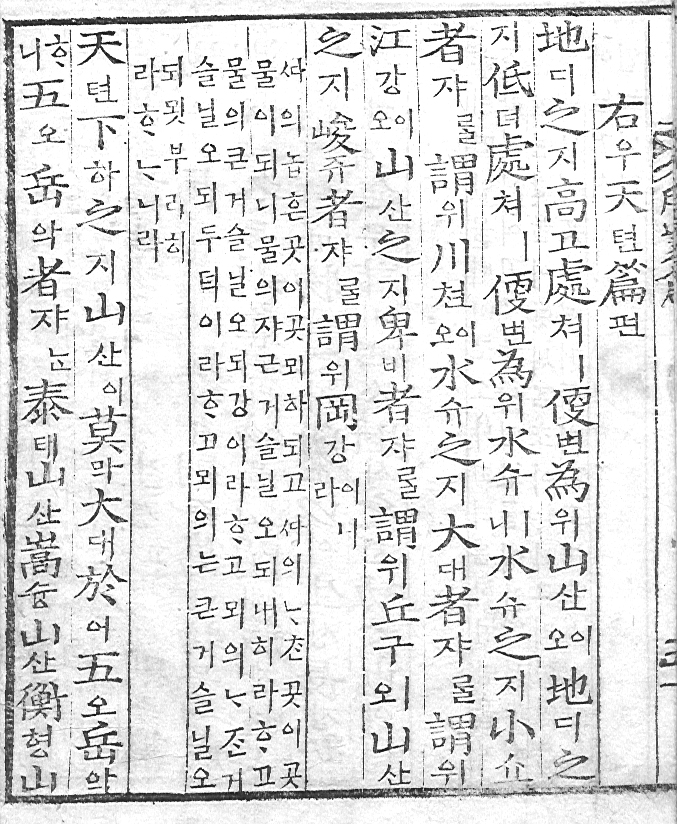 右우天텬篇편
地디之지高고處쳐ㅣ便변為위山산이오地디之
지低뎌處쳐ㅣ便변為위水슈ㅣ니水슈之지小쇼
者쟈ᄅᆞᆯ謂위川쳔이오水슈之지大대者쟈ᄅᆞᆯ謂위
江강이오山산之지卑비者쟈ᄅᆞᆯ謂위丘구ㅣ오山산
之지峻쥰者쟈ᄅᆞᆯ謂위岡강이니라
ᄯᅡ의놉흔곳이곳뫼하되고ᄯᅡ의ᄂᆞᄌᆞᆫ곳이곳
물이되니물의쟈근거슬닐오되내히라ᄒᆞ고
물의큰거슬닐오되강이라ᄒᆞ고뫼의ᄂᆞ존거
슬닐오되두덕이라ᄒᆞ고뫼의는큰거슬닐오
되묏부리히
라ᄒᆞᄂᆞ니라
天텬下하之지山산이莫막大대於어五오岳악
ᄒᆞ니五오岳악者쟈ᄂᆞᆫ泰태山산嵩슝山산衡형山